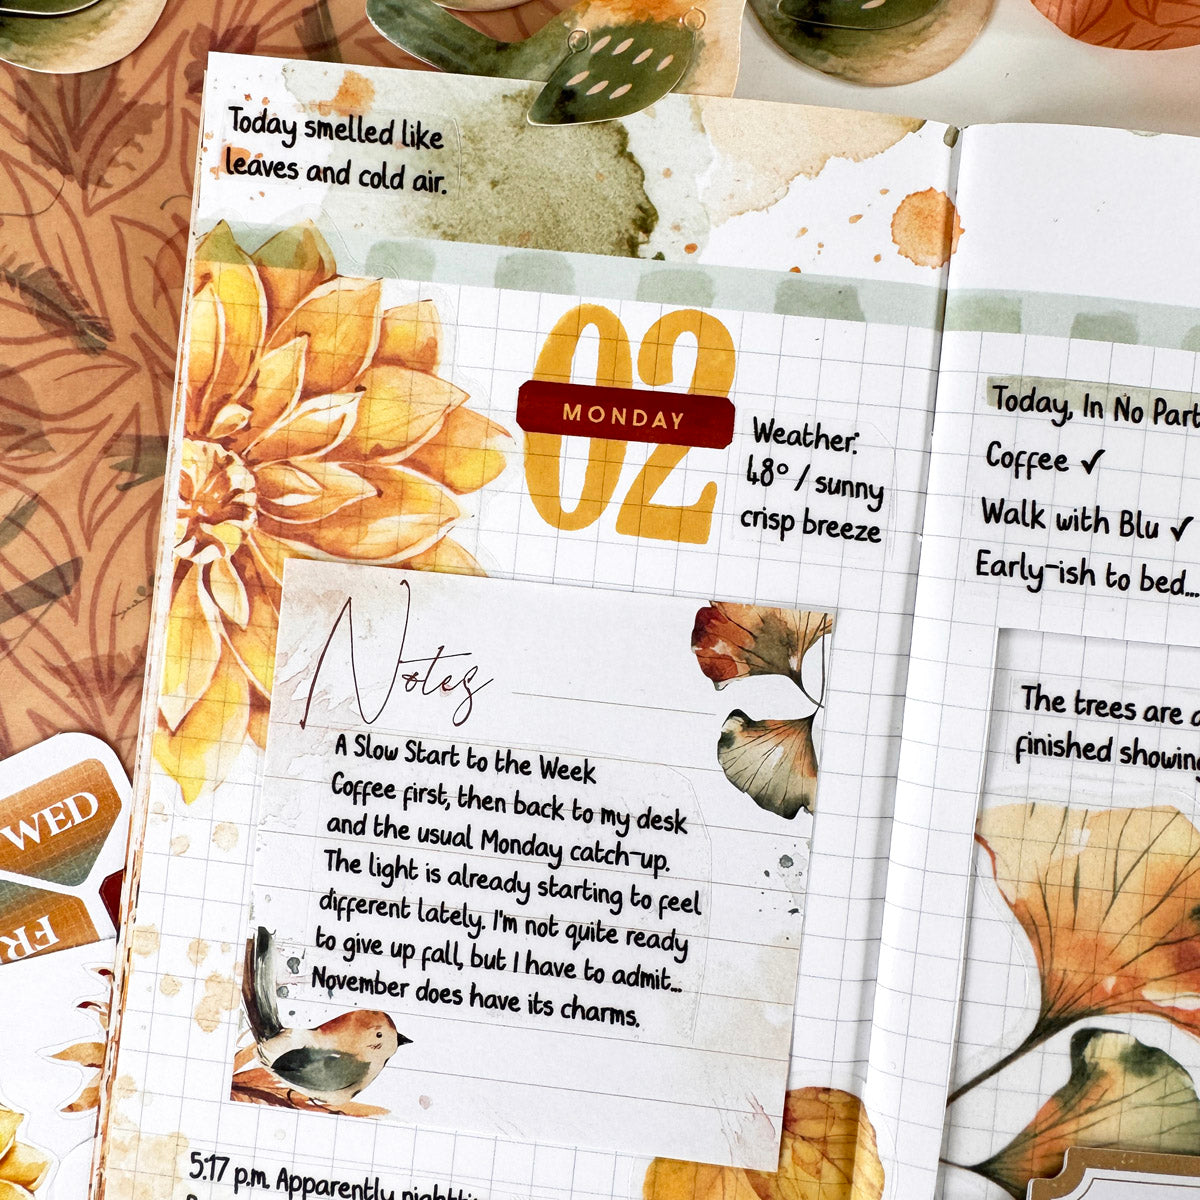 Today smelled like
leaves and cold air.
02
MONDAY
Weather:
48° / sunny
crisp breeze
Notes
A Slow Start to the Week
Coffee first, then back to my desk
and the usual Monday catch-up.
The light is already starting to feel
different lately. I'm not quite ready
to give up fall, but I have to admit...
November does have its charms.
5:17 p.m. Apparently
Today, In No
Coffee ✓
Walk with Blu ✓
Early-ish to bed...
The trees are
finished
WED